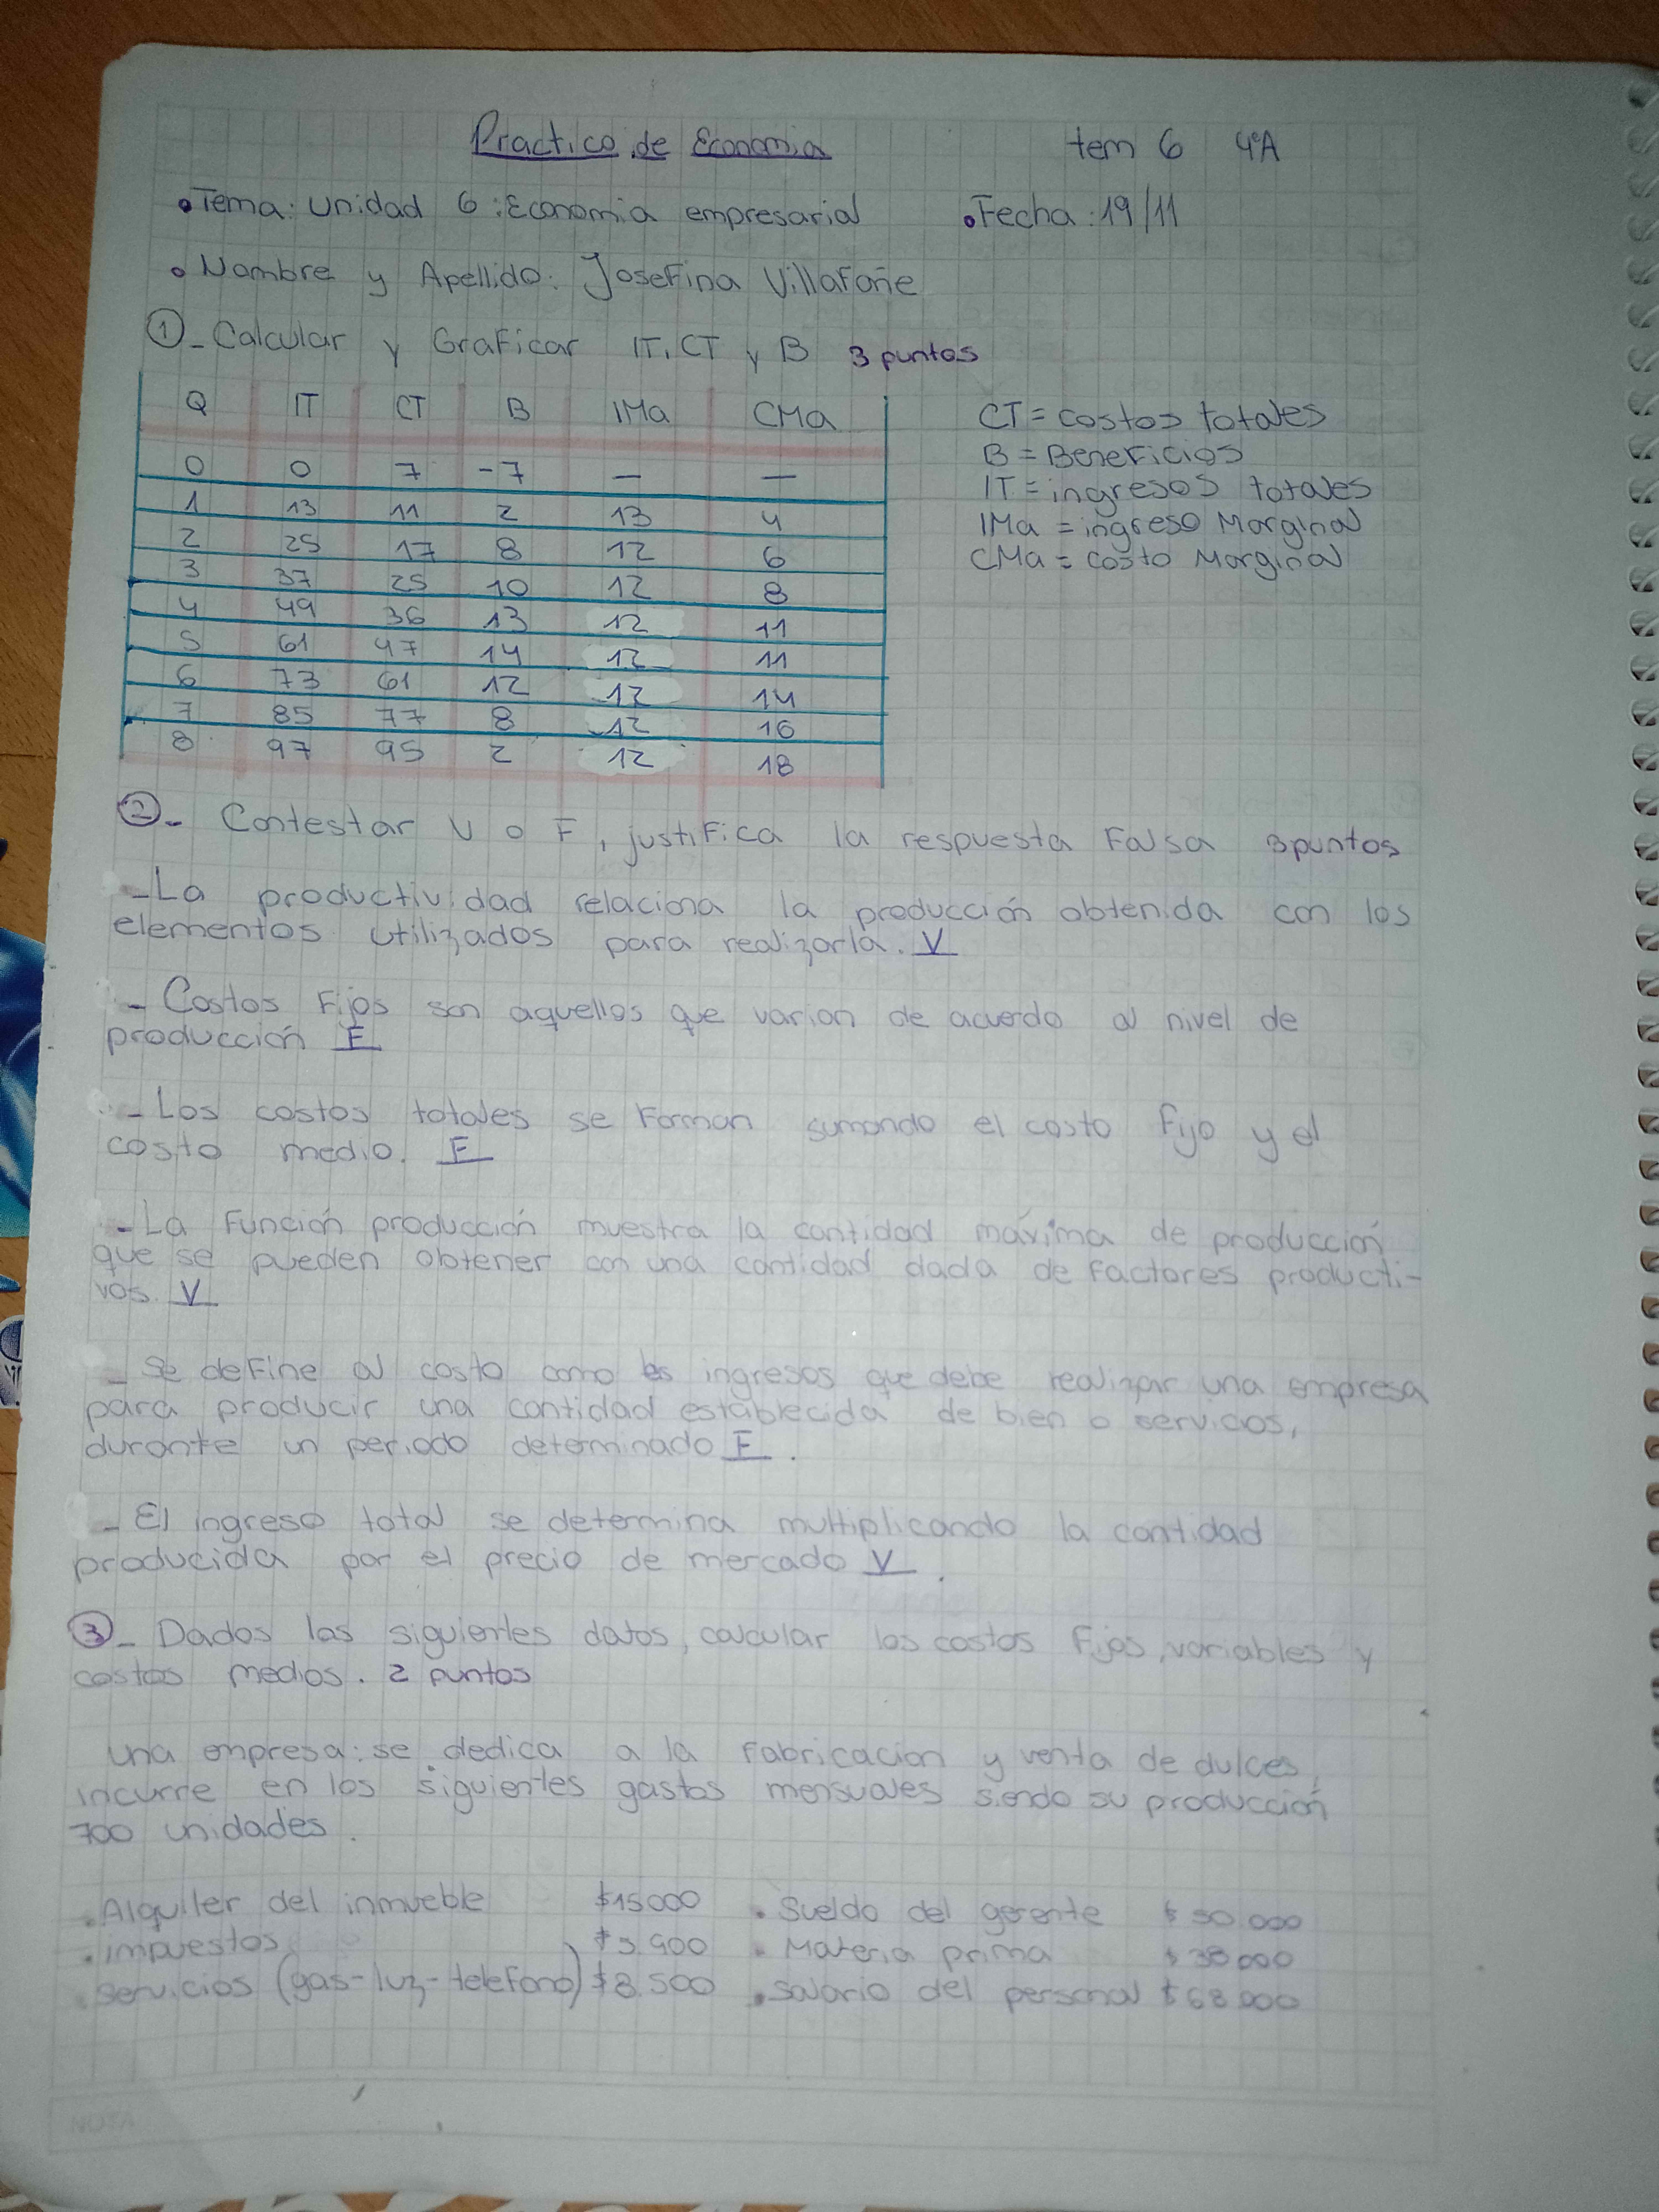 Practico de Economia tem 6 4°A
• Tema: Unidad 6: Economia empresarial • Fecha: 19/11
• Nombre y Apellido: Josefina Villafañe
① - Calcular y Graficar IT, CT y B 3 puntos
Q IT CT B IMa CMa
0 0 7 -7 — —
1 13 11 2 13 4
2 25 17 8 12 6
3 37 25 10 12 8
4 49 36 13 12 11
5 61 47 14 12 11
6 73 61 12 12 14
7 85 77 8 12 16
8 97 95 2 12 18
CT = costos totales
B = Beneficios
IT = ingresos totales
IMa = ingreso Marginal
CMa = costo Marginal
② - Contestar V o F, justifica la respuesta Falsa 3puntos
- La productividad relaciona la producción obtenida con los
elementos utilizados para realizarla. V
- Costos Fijos son aquellos que varian de acuerdo al nivel de
producción F
- Los costos totales se Forman sumando el costo fijo y el
costo medio. F
- La Función producción muestra la cantidad máxima de producción
que se pueden obtener con una cantidad dada de factores producti-
vos. V
- Se define al costo como los ingresos que debe realizar una empresa
para producir una cantidad establecida de bien o servicios,
durante un periodo determinado F.
- El ingreso total se determina multiplicando la cantidad
producida por el precio de mercado V.
③ - Dados los siguientes datos, calcular los costos Fijos, variables y
costos medios. 2 puntos
Una empresa: se dedica a la Fabricacion y venta de dulces,
incurre en los siguientes gastos mensuales siendo su producción
700 unidades.
• Alquiler del inmueble $15000 • Sueldo del gerente $
• impuestos • Materia prima $
servicios (gas-luz-telefono) $8.500 • Salario del personal $68.000
NOTA